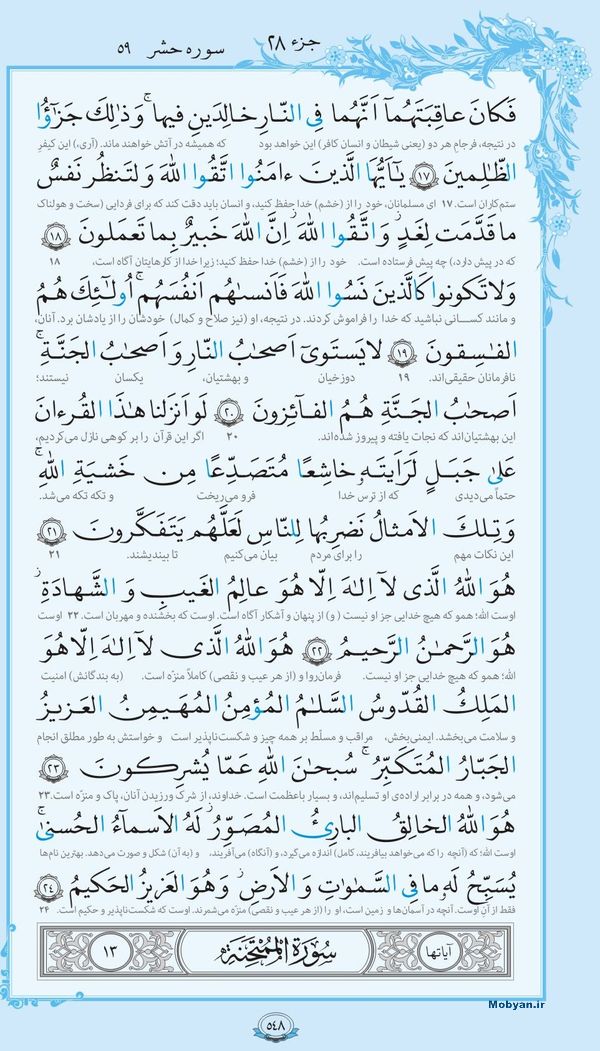 جزء ۲۸ سوره حشر ۵۹
فَكانَ عاقِبَتَهُمآ اَنَّهُما فِی النّارِ خالِدَینِ فیها ۚ وَ ذٰلِكَ جَزٰٓؤُا
در نتیجه، فرجامِ هر دو (یعنی شیطان و انسان کافر) این خواهد بود که همیشه در آتش خواهند ماند. (آری،) این کیفرِ
الظّٰلِمینَ ﴿۱۷﴾ یٰٓاَیُّهَا الَّذینَ ءامَنُوا اتَّقُوا اللهَ وَلتَنظُر نَفسٌ
ستمکاران است. ۱۷ ای مسلمانان، خود را از (خشمِ) خدا حفظ کنید، و انسان باید دقت کند که برای فردایی (سخت و هولناک
ما قَدَّمَت لِغَدٍ ۖ وَ اتَّقُوا اللهَ ۚ اِنَّ اللهَ خَبیرٌ بِما تَعمَلونَ ﴿۱۸﴾
که در پیش دارد،) چه پیش فرستاده است. خود را از (خشمِ) خدا حفظ کنید؛ زیرا خدا از کارهایتان آگاه است، ۱۸
وَلا تَكونوا كَالَّذینَ نَسُوا اللهَ فَاَنسٰىهُم اَنفُسَهُم ۚ اُولٰٓئِكَ هُمُ
و مانند کســانی نباشید که خدا را فراموش کردند. در نتیجه، او (نیز صلاح و کمالِ) خودشان را از یادشان برد. آنان،
الفٰـسِقونَ ﴿۱۹﴾ لا یَستَویٓ اَصحٰبُ النّارِ وَ اَصحٰبُ الجَنَّةِ ۚ
نافرمانان حقیقی‌اند. ۱۹ دوزخیان و بهشتیان، یکسان نیستند؛
اَصحٰبُ الجَنَّةِ هُمُ الفآئِزونَ ﴿۲۰﴾ لَو اَنزَلنا هٰذَا القُرءانَ
این بهشتیان‌اند که نجات یافته و پیروز شده‌اند. ۲۰ اگر این قرآن را بر کوهی نازل می‌کردیم،
عَلیٰ جَبَلٍ لَرَاَیتَهو خاشِعًا مُتَصَدِّعًا مِن خَشیَةِ اللهِ ۚ
حتماً می‌دیدی که از ترس خدا فرو می‌ریخت و تکه تکه می‌شد.
وَ تِلكَ الاَمثالُ نَضرِبُها لِلنّاسِ لَعَلَّهُم یَتَفَكَّرونَ ﴿۲۱﴾
این نکات مهم را برای مردم بیان می‌کنیم تا بیندیشند. ۲۱
هُوَ اللهُ الَّذی لآ اِلٰهَ اِلّا هُوَ ۖ عالِمُ الغَیبِ وَ الشَّهادَةِ ۖ
اوست الله؛ همو که هیچ خدایی جز او نیست (و) از پنهان و آشکار آگاه است. اوست که بخشنده و مهربان است. ۲۲ اوست
هُوَ الرَّحمٰنُ الرَّحیمُ ﴿۲۲﴾ هُوَ اللهُ الَّذی لآ اِلٰهَ اِلّا هُوَ
الله؛ همو که هیچ خدایی جز او نیست. فرمان‌روا و (از هر عیب و نقصی) کاملاً منزّه است. (به بندگانش) امنیت
المَلِكُ القُدّوسُ السَّلٰمُ المُؤمِنُ المُهَیمِنُ العَزیزُ
و سلامت می‌بخشد. ایمنی‌بخش، مراقب و مسلّط بر همه چیز و شکست‌ناپذیر است و خواستش به طور مطلق انجام
الجَبّارُ المُتَكَبِّرُ ۚ سُبحٰنَ اللهِ عَمّا یُشرِكونَ ﴿۲۳﴾
می‌شود، و همه در برابر اراده‌ی او تسلیم‌اند، و بسیار باعظمت است. خداوند، از شرک ورزیدن آنان، پاک و منزّه است. ۲۳
هُوَ اللهُ الخالِقُ البارِئُ المُصَوِّرُ ۖ لَهُ الاَسمآءُ الحُسنیٰ ۚ
اوست الله؛ که (آنچه را که می‌خواهد بیافریند، کامل) اندازه می‌گیرد، و (آنگاه) می‌آفریند، و (به آن) شکل و صورت می‌دهد. بهترین نام‌ها
یُسَبِّحُ لَهو ما فِی السَّمٰوٰتِ وَ الاَرضِ ۖ وَ هُوَ العَزیزُ الحَكیمُ ﴿۲۴﴾
فقط از آنِ اوست. آنچه در آسمان‌ها و زمین است، او را (از هر عیب و نقصی) منزّه می‌شمرند. اوست که شکست‌ناپذیر و حکیم است. ۲۴
آیاتها سُورَةُ المُمْتَحَنَة ۱۳
Mobyan.ir
۵۴۸